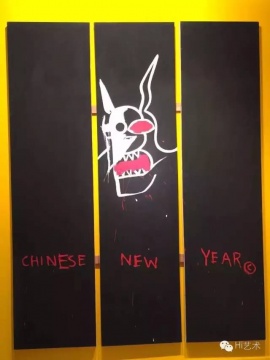 CHINESE NEW YEAR©
Hi艺术